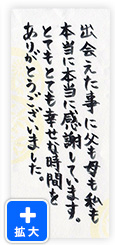 出会えた事に父も母も私も
本当に本当に感謝しています。
とてもとても幸せな時間を
ありがとうございました。
拡大